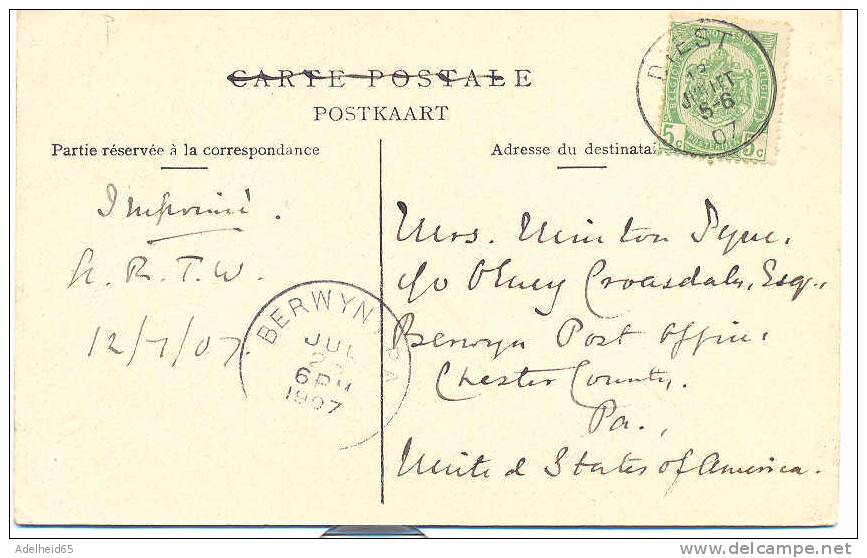 CARTE POSTALE
POSTKAART
Partie réservée à la correspondance
Adresse du destinatai
DIEST
JUILLET
5-6
07
5c 5c
Imprimé.
R. T. W.
12/7/07.
BERWYN PA
JUL
6 PM
1907
Mrs. Minton Pyne,
c/o Olney Croasdale, Esq.,
Berwyn Post Office,
Chester County,
Pa.,
United States of America.
Adelheid65
delcampe.net